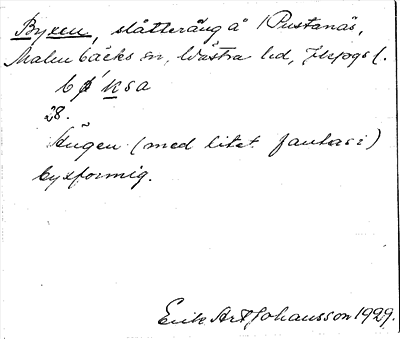 Byxen, slåtteräng å Pustanäs,
Malmbäcks sn, Västra hd, Jkpgs l.
bø'ksa
28.
Ängen (med litet fantasi)
byxformig.
Erik Art Johansson 1929.